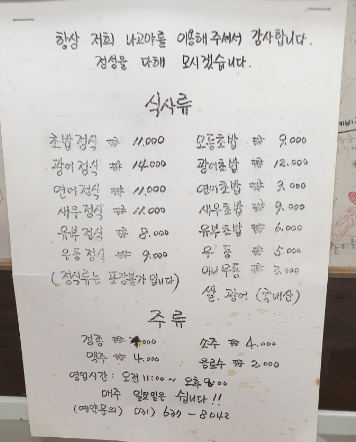 항상 저희 나고야를 이용해 주셔서 감사합니다.
정성을 다해 모시겠습니다.
식사류
초밥정식 ₩ 11.000
광어정식 ₩ 14.000
연어정식 ₩ 11.000
새우정식 ₩ 11.000
유부정식 ₩ 8.000
우동정식 ₩ 9.000
(정식류는 포장불가 입니다)
모듬초밥 ₩ 9.000
광어초밥 ₩ 12.000
연어초밥 ₩ 9.000
새우초밥 ₩ 9.000
유부초밥 ₩ 6.000
우동 ₩ 5.000
미니우동 ₩ 3.000
쌀. 광어 (국내산)
주류
청주 ₩ 4.000
맥주 ₩ 4.000
소주 ₩ 4.000
음료수 ₩ 2.000
영업시간: 오전 11:00 ~ 오후 8:00
매주 일요일은 쉽니다!!
(예약문의) 031) 637-8042